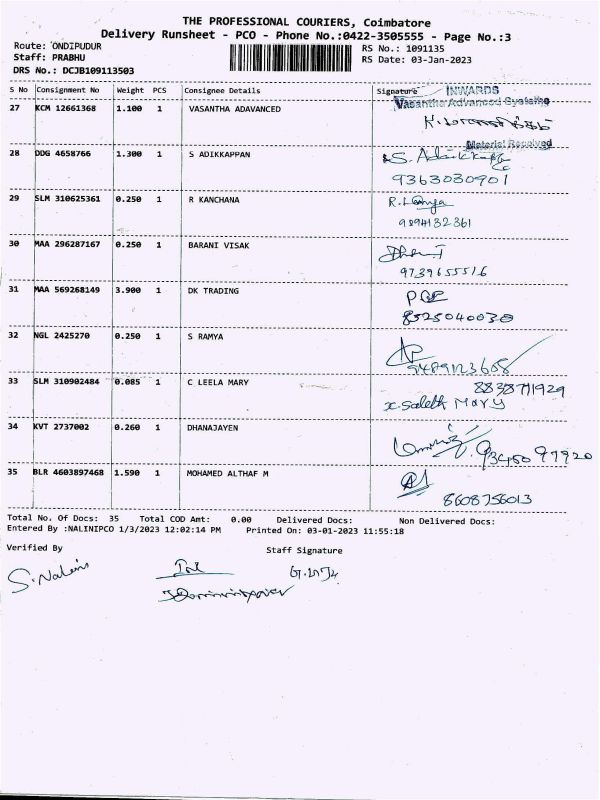 THE PROFESSIONAL COURIERS, Coimbatore
Delivery Runsheet - PCO - Phone No.:0422-3505555 - Page No.:3
Route: ONDIPUDUR RS No.: 1091135
Staff: PRABHU RS Date: 03-Jan-2023
DRS No.: DCJB109113503
S No Consignment No Weight PCS Consignee Details Signature INWARDS
Vasantha Advanced Systems
27 KCM 12661368 1.100 1 VASANTHA ADAVANCED
Material Received
28 DDG 4658766 1.300 1 S ADIKKAPPAN S. Adikkappan
9363030901
29 SLM 310625361 0.250 1 R KANCHANA
9894132361
30 MAA 296287167 0.250 1 BARANI VISAK
9739655516
31 MAA 569268149 3.900 1 DK TRADING
8525040030
32 NGL 2425270 0.250 1 S RAMYA
9489123608
33 SLM 310902484 0.085 1 C LEELA MARY
x. Saleth Mary
34 KVT 2737002 0.260 1 DHANAJAYEN
9345097920
35 BLR 4603897468 1.590 1 MOHAMED ALTHAF M
8608756013
Total No. Of Docs: 35 Total COD Amt: 0.00 Delivered Docs: Non Delivered Docs:
Entered By :NALINIPCO 1/3/2023 12:02:14 PM Printed On: 03-01-2023 11:55:18
Verified By Staff Signature
S. Nalini